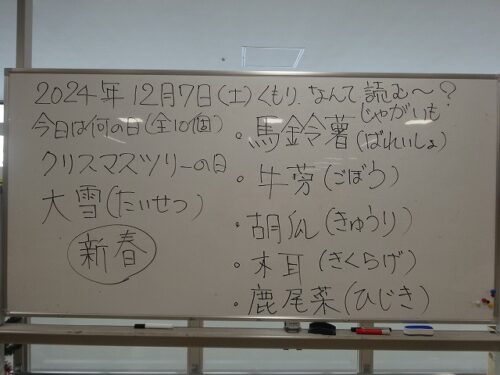 2024年12月7日(土)くもり.なんて読む～?
今日は何の日(全10個)
クリスマスツリーの日
大雪(たいせつ)
新春
じゃがいも
・馬鈴薯(ばれいしょ)
・牛蒡(ごぼう)
・胡瓜(きゅうり)
・木耳(きくらげ)
・鹿尾菜(ひじき)